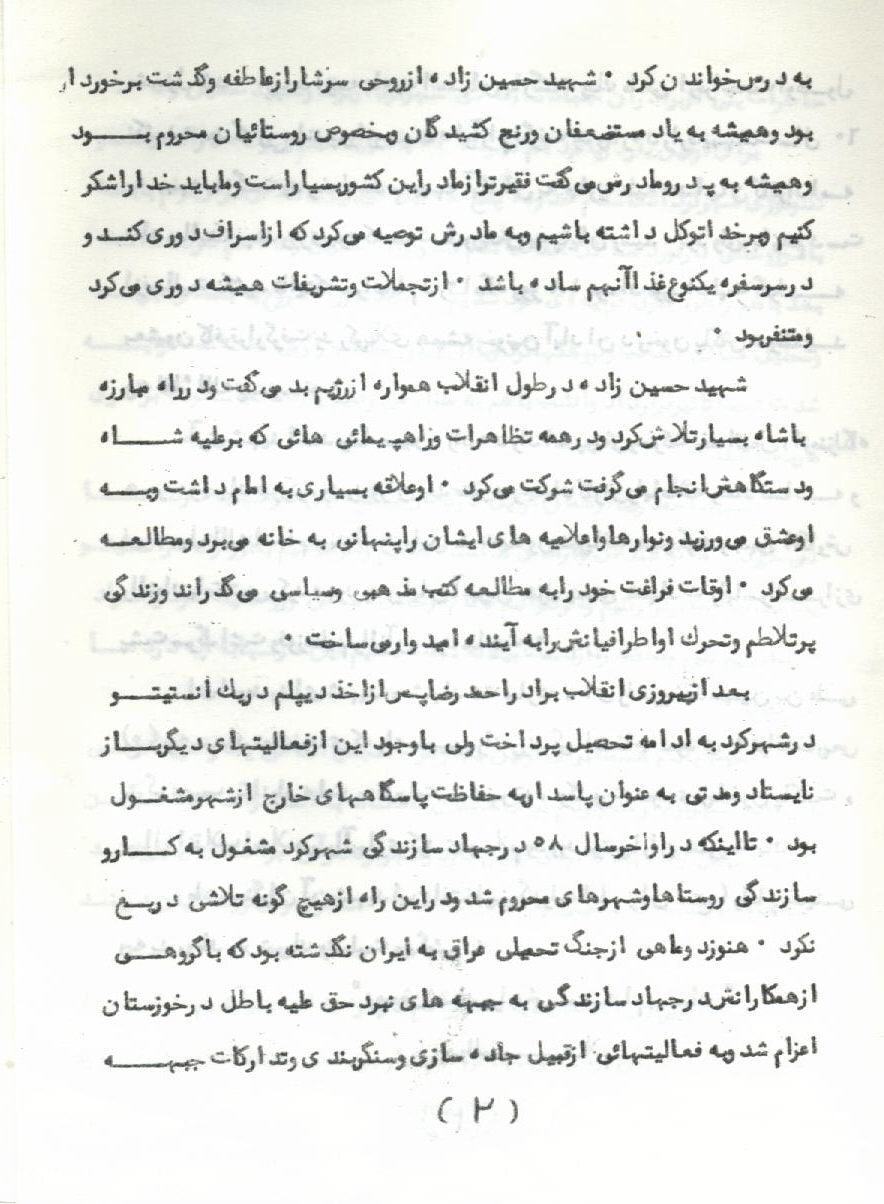 به درس خواندن کرد . شهید حسین زاده ازروحی سرشارازعاطفه وگذشت برخوردار
بود وهمیشه به یاد مستضعفان ورنج کشیدگان وبخصوص روستائیان محروم بود
وهمیشه به پدر ومادرش می گفت فقیرتر ازمادر این کشوربسیاراست ومابايد خدا راشکر
کنیم وبرخدا توکل داشته باشیم وبه مادرش توصیه می کرد که ازاسراف دوری کند و
درسر سفره یکنوع غذا آنهم ساده باشد . ازتجملات وتشریفات همیشه دوری می کرد
ومتنفر بود .
شهید حسین زاده درطول انقلاب همواره ازرژیم بد می گفت ودرراه مبارزه
باشاه بسیار تلاش کرد ودرهمه تظاهرات وراهپیمائی هائی که برعلیه شاه
ودستگاهش انجام می گرفت شرکت می کرد . اوعلاقه بسیاری به امام داشت وبه
اوعشق می ورزید ونوارها واعلامیه های ایشان راپنهانی به خانه می برد ومطالعه
می کرد . اوقات فراغت خود رابه مطالعه کتب مذهبی وسیاسی می گذراند وزندگی
پرتلاطم وتحرك او اطرافیانش رابه آینده امیدوارمی ساخت .
بعد ازپیروزی انقلاب برادر احمدرضا پس ازاخذ دیپلم دریك انستیتو
درشهرکرد به ادامه تحصیل پرداخت ولی باوجود این ازفعالیتهای دیگرباز
نایستاد ومدتی به عنوان پاسدار به حفاظت پاسگاههای خارج ازشهر مشغول
بود . تااینکه دراواخرسال ۵۸ درجهاد سازندگی شهرکرد مشغول به کار و
سازندگی روستاها وشهرهای محروم شد ودراین راه ازهیچ گونه تلاشی دریغ
نکرد . هنوز دوماهی ازجنگ تحمیلی عراق به ایران نگذشته بود که باگروهی
ازهمکارانش درجهاد سازندگی به جبهه های نبرد حق علیه باطل درخوزستان
اعزام شد وبه فعالیتهائی ازقبیل جاده سازی وسنگربندی وتدارکات جبهه
( ۲ )